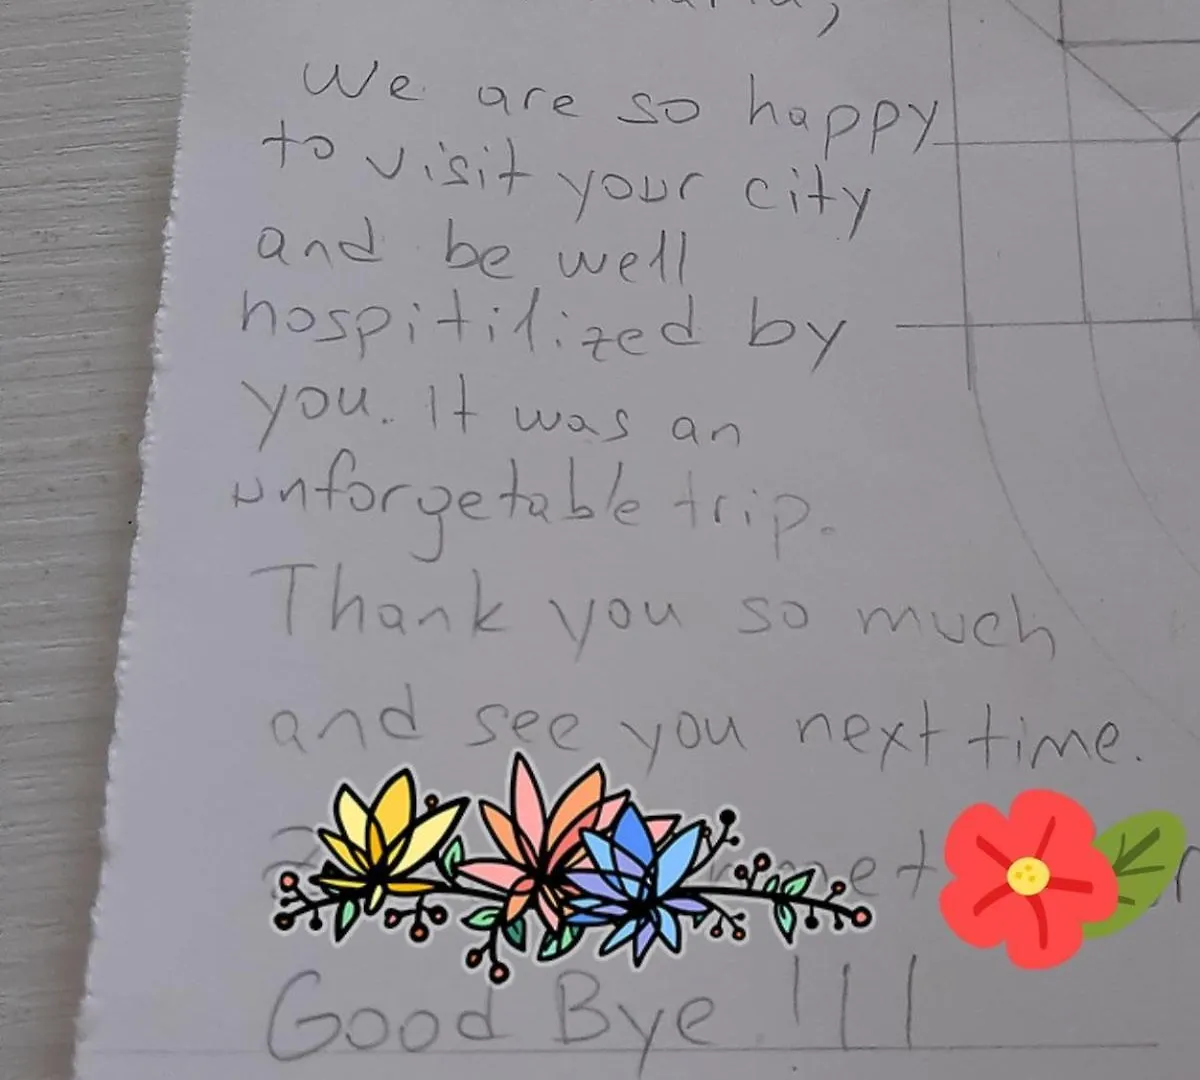 We are so happy
to visit your city
and be well
hospitilized by
you. It was an
unforgetable trip.
Thank you so much
and see you next time.
Good Bye !!!